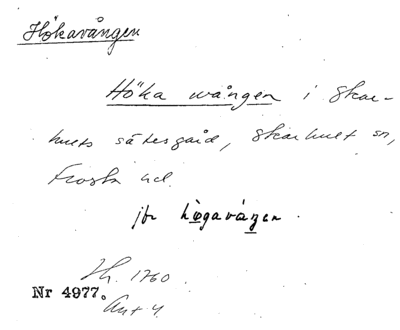 Hökavången
Höka wången i Skar-
hults sätesgård, Skarhult sn,
Frosta hd.
jfr högavången.
Nr 4977.
1760.